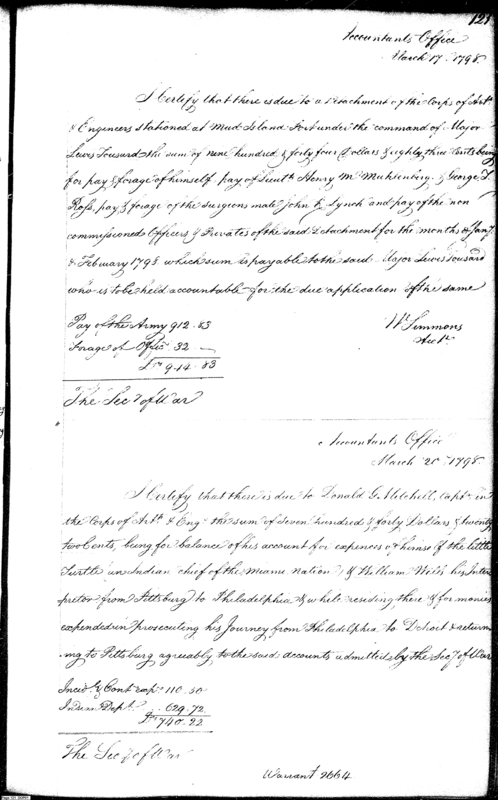 121
Accountants Office
March 17. 1798.
I Certify that there is due to a Detachment of the Corps of Artts
& Engineers stationed at Mud Island Fort under the command of Major
Lewis Tousard the sum of nine hundred & forty four Dollars & eighty three Cents being
for pay & forage of himself pay of Lieuts Henry M Muhlenberg & George T
Ross, pay & forage of the surgeons mate John K Lynch and pay of the non
commissioned Officers & Privates of the said Detachment for the months of Jany
& February 1798 which sum is payable to the said Major Lewis Tousard
who is to be held accountable for the due application of the same
Pay of the Army 912.83
Wm Simmons
Forage of Offs 32 —
Acct
Drs 944.83
The Secy of War
Accountants Office
March 20. 1798.
I Certify that there is due to Donald G. Mitchell, Capt in
the Corps of Art & Eng the sum of Seven hundred & forty Dollars & twenty
two Cents, being for balance of his account for expences of himself the little
Turtle an Indian chief of the Miami nation & William Wells his Inter
pretor from Pittsburg to Philadelphia & while residing there & for monies
expended in prosecuting his Journey from Philadelphia to Detroit & return
ing to Pittsburg agreeably to the said accounts admitted by the Secy of War
Incidl & Cont exps 110.50
Indian Dept 629.72
Drs 740.22
The Secy of War
Warrant 2664